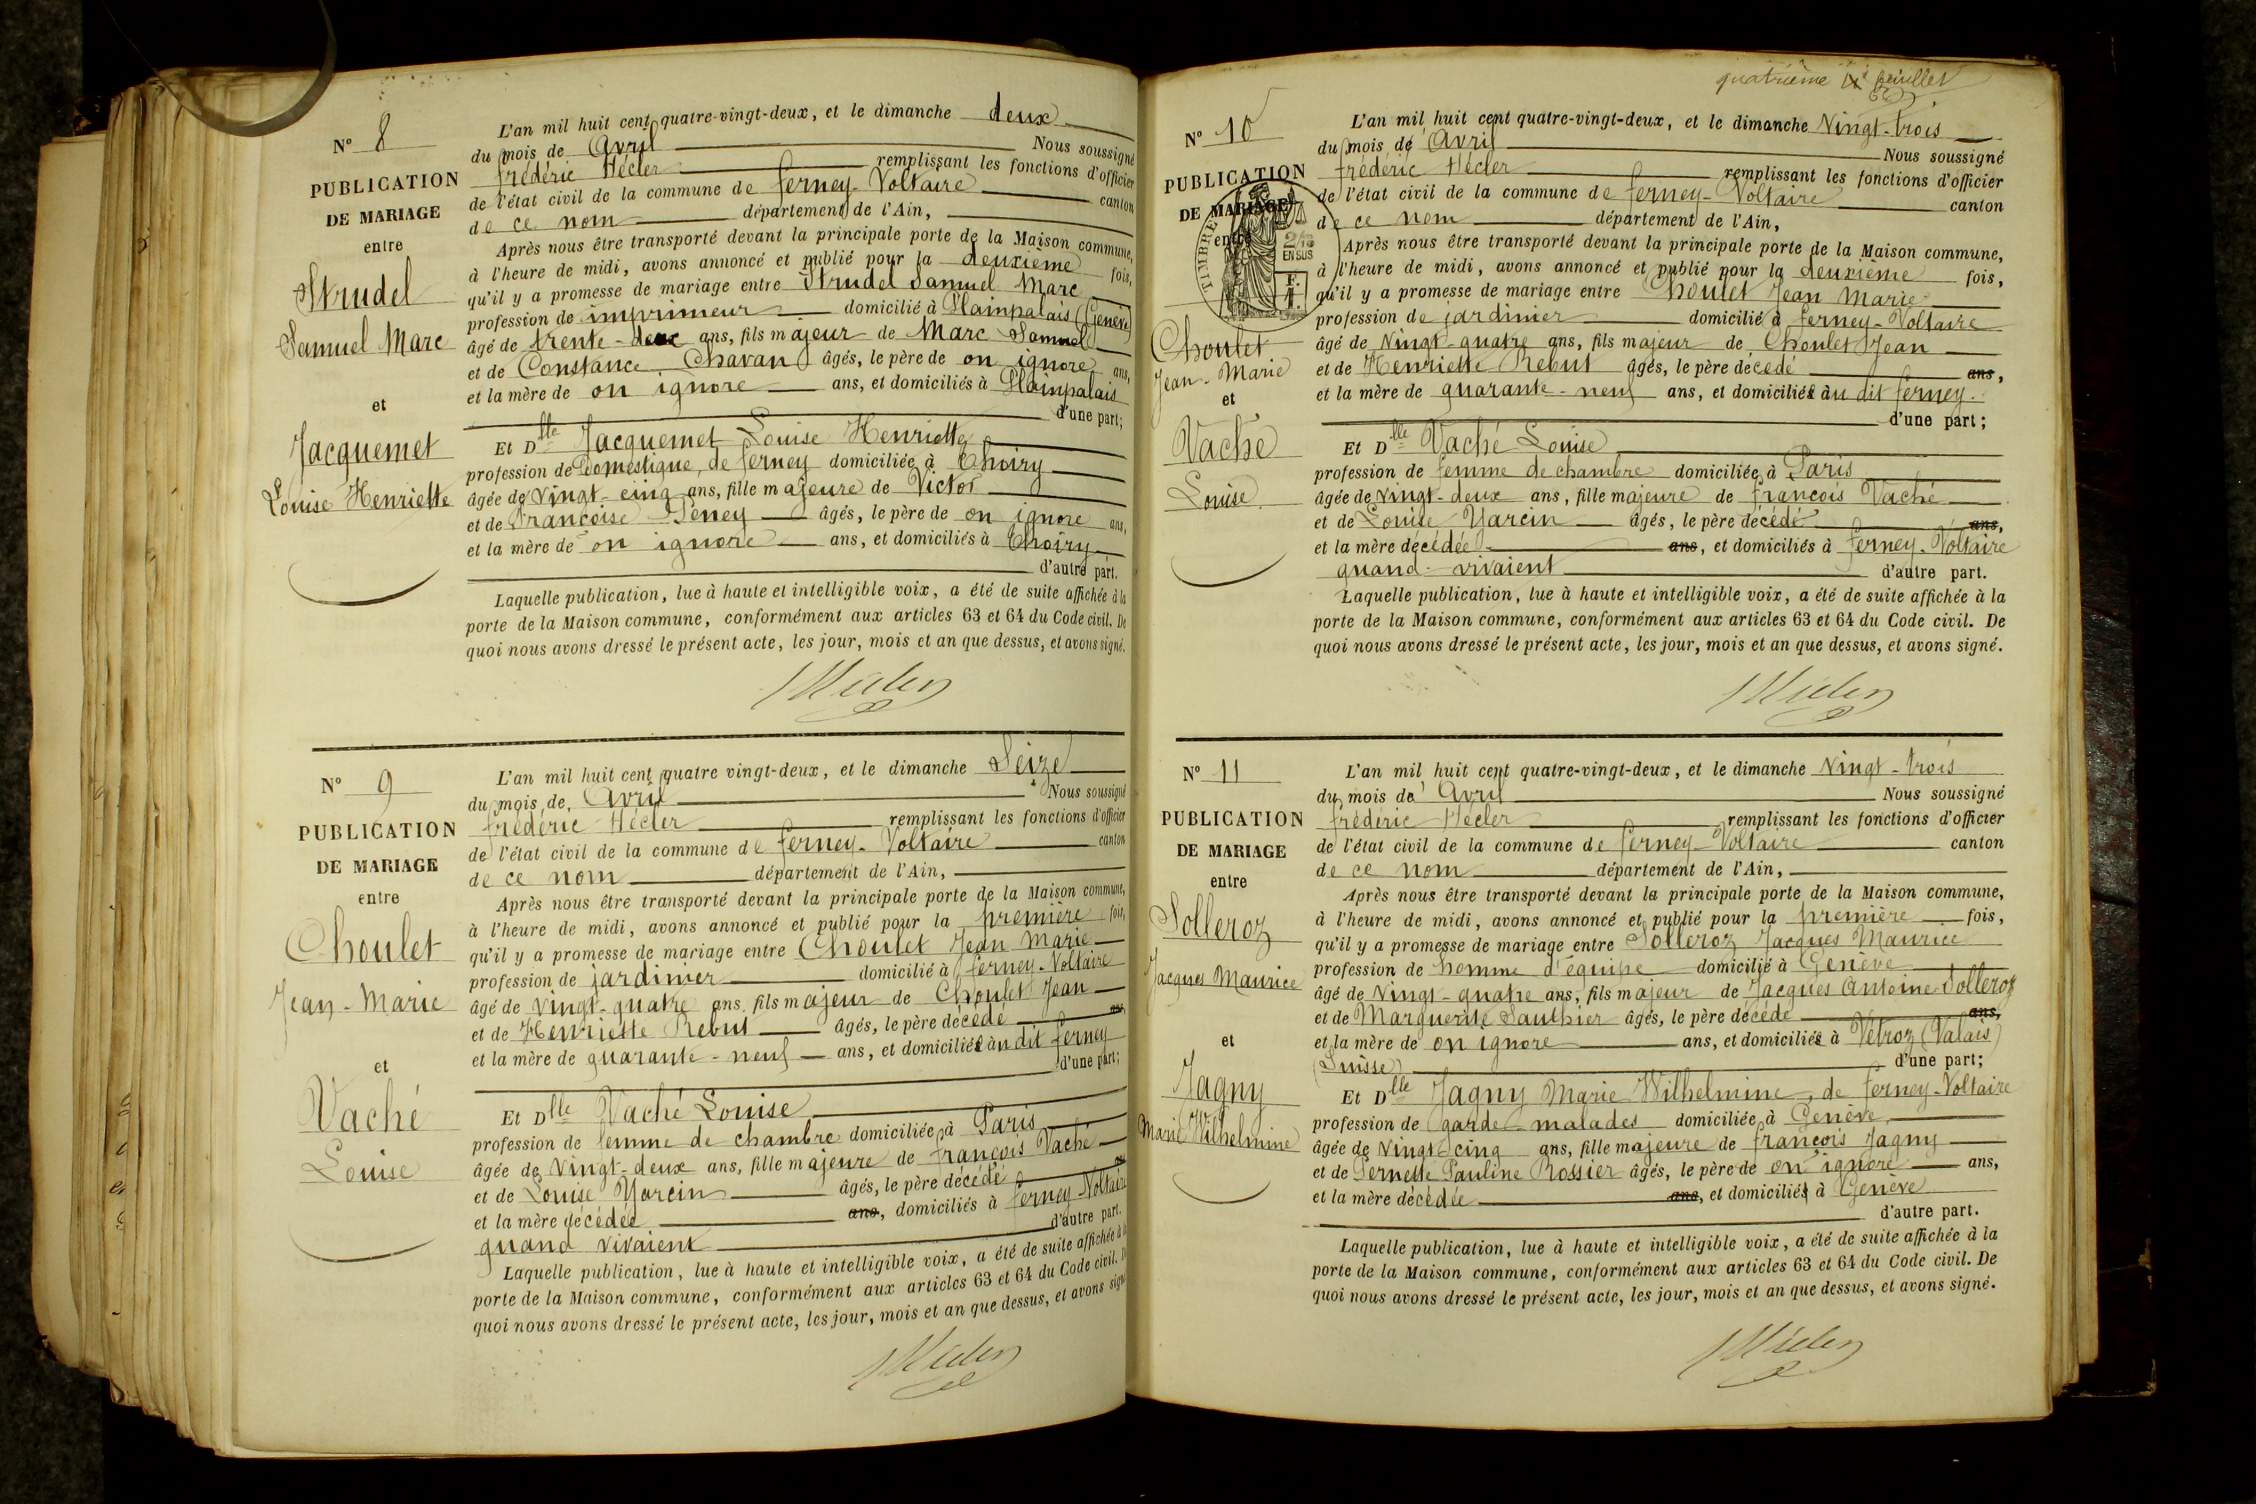 N° 8
PUBLICATION
DE MARIAGE
entre
Strudel
Samuel Marc
et
Jacquemet
Louise Henriette
L'an mil huit cent quatre-vingt-deux, et le dimanche deux
du mois de Avril Nous soussigné
frédéric Hécler remplissant les fonctions d'officier
de l'état civil de la commune de ferney-Voltaire canton
de ce nom département de l'Ain,
Après nous être transporté devant la principale porte de la Maison commune,
à l'heure de midi, avons annoncé et publié pour la deuxième fois,
qu'il y a promesse de mariage entre Strudel Samuel Marc
profession de imprimeur domicilié à Plainpalais (Genève)
âgé de trente-deux ans, fils majeur de Marc Samuel
et de Constance Chavan âgés, le père de on ignore ans,
et la mère de on ignore ans, et domiciliés à Plainpalais
d'une part;
Et Dlle Jacquemet Louise Henriette
profession de domestique, de ferney domiciliée à Thoiry
âgée de vingt-cinq ans, fille majeure de Victor
et de Françoise Péney âgés, le père de on ignore ans,
et la mère de on ignore ans, et domiciliés à Thoiry
d'autre part.
Laquelle publication, lue à haute et intelligible voix, a été de suite affichée à la
porte de la Maison commune, conformément aux articles 63 et 64 du Code civil. De
quoi nous avons dressé le présent acte, les jour, mois et an que dessus, et avons signé.
N° 9
PUBLICATION
DE MARIAGE
entre
Choulet
Jean-Marie
et
Vaché
Louise
L'an mil huit cent quatre vingt-deux, et le dimanche Seize
du mois de Avril Nous soussigné
frédéric Hécler remplissant les fonctions d'officier
de l'état civil de la commune de ferney-Voltaire canton
de ce nom département de l'Ain,
Après nous être transporté devant la principale porte de la Maison commune,
à l'heure de midi, avons annoncé et publié pour la première fois,
qu'il y a promesse de mariage entre Choulet Jean Marie
profession de jardinier domicilié à ferney-Voltaire
âgé de vingt-quatre ans, fils majeur de Choulet Jean
et de Henriette Rebut âgés, le père décédé ans,
et la mère de quarante-neuf ans, et domiciliés au dit ferney
d'une part;
Et Dlle Vaché Louise
profession de femme de chambre domiciliée à Paris
âgée de vingt-deux ans, fille majeure de françois Vaché
et de Louise Yarcin âgés, le père décédé ans
et la mère décédée ans, domiciliés à ferney-Voltaire
quand vivaient d'autre part.
Laquelle publication, lue à haute et intelligible voix, a été de suite affichée à la
porte de la Maison commune, conformément aux articles 63 et 64 du Code civil. De
quoi nous avons dressé le présent acte, les jour, mois et an que dessus, et avons signé
quatrième feuillet
N° 10
PUBLICATION
DE MARIAGE
entre
TIMBRE
2/10
EN SUS
Choulet
Jean-Marie
et
Vaché
Louise
L'an mil huit cent quatre-vingt-deux, et le dimanche Vingt-trois
du mois de Avril Nous soussigné
frédéric Hécler remplissant les fonctions d'officier
de l'état civil de la commune de ferney-Voltaire canton
de ce nom département de l'Ain,
Après nous être transporté devant la principale porte de la Maison commune,
à l'heure de midi, avons annoncé et publié pour la deuxième fois,
qu'il y a promesse de mariage entre Choulet Jean Marie
profession de jardinier domicilié à ferney-Voltaire
âgé de Vingt-quatre ans, fils majeur de Choulet Jean
et de Henriette Rebut âgés, le père décédé ans,
et la mère de quarante-neuf ans, et domiciliés au dit ferney.
d'une part;
Et Dlle Vaché Louise
profession de femme de chambre domiciliée à Paris
âgée de vingt-deux ans, fille majeure de françois Vaché
et de Louise Yarcin âgés, le père décédé ans,
et la mère décédée ans, et domiciliés à ferney-Voltaire
quand vivaient d'autre part.
Laquelle publication, lue à haute et intelligible voix, a été de suite affichée à la
porte de la Maison commune, conformément aux articles 63 et 64 du Code civil. De
quoi nous avons dressé le présent acte, les jour, mois et an que dessus, et avons signé.
N° 11
PUBLICATION
DE MARIAGE
entre
Solleroz
Jacques Maurice
et
Jagny
Marie Wilhelmine
L'an mil huit cent quatre-vingt-deux, et le dimanche Vingt-trois
du mois de Avril Nous soussigné
frédéric Hécler remplissant les fonctions d'officier
de l'état civil de la commune de ferney-Voltaire canton
de ce nom département de l'Ain,
Après nous être transporté devant la principale porte de la Maison commune,
à l'heure de midi, avons annoncé et publié pour la première fois,
qu'il y a promesse de mariage entre Solleroz Jacques Maurice
profession de homme d'équipe domicilié à Genève
âgé de Vingt-quatre ans, fils majeur de Jacques Antoine Solleroz
et de Marguerite Sauthier âgés, le père décédé ans,
et la mère de on ignore ans, et domiciliés à Vétroz (Valais)
(Suisse) d'une part;
Et Dlle Jagny Marie Wilhelmine, de ferney-Voltaire
profession de garde-malades domiciliée à Genève
âgée de Vingt-cinq ans, fille majeure de françois Jagny
et de Pernette Pauline Rossier âgés, le père de on ignore ans,
et la mère décédée ans, et domiciliés à Genève
d'autre part.
Laquelle publication, lue à haute et intelligible voix, a été de suite affichée à la
porte de la Maison commune, conformément aux articles 63 et 64 du Code civil. De
quoi nous avons dressé le présent acte, les jour, mois et an que dessus, et avons signé.